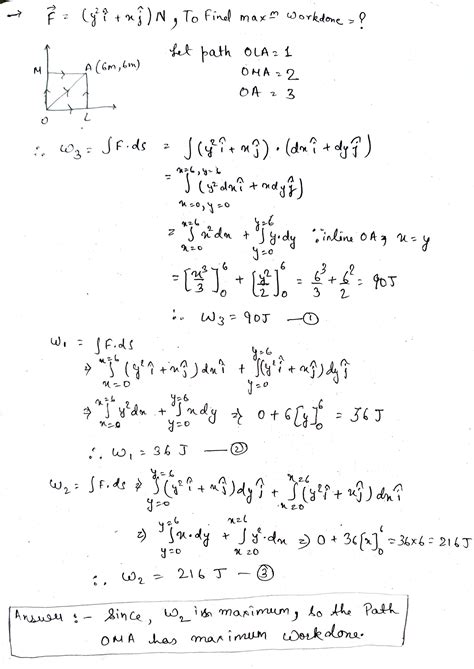 → F⃗ = (y² î + x ĵ) N, To Find maxᵐ workdone = ?
Let path OLA = 1
OMA = 2
OA = 3
M
A (6m, 6m)
O
L
∴ W₃ = ∫F.ds = ∫(y² î + x ĵ) · (dx î + dy ĵ)
= ∫ (x=0, y=0 to x=6, y=6) (y² dx î + x dy ĵ)
= ∫ (x=0 to x=6) x² dx + ∫ (y=0 to y=6) y·dy ∵ inline OA ⇒ x = y
= [x³/3]₀⁶ + [y²/2]₀⁶ = 6³/3 + 6²/2 = 90J
∴ W₃ = 90J —①
W₁ = ∫F.ds
⇒ ∫ (x=0 to x=6) (y² î + x ĵ) dx î + ∫ (y=0 to y=6) (y² î + x ĵ) dy ĵ
⇒ ∫ (x=0 to x=6) y² dx + ∫ (y=0 to y=6) x dy ⇒ 0 + 6[y]₀⁶ = 36 J
∴ W₁ = 36 J —②
W₂ = ∫F.ds ⇒ ∫ (y=0 to y=6) (y² î + x ĵ) dy ĵ + ∫ (x=0 to x=6) (y² î + x ĵ) dx î
⇒ ∫ (y=0 to y=6) x·dy + ∫ (x=0 to x=6) y²·dx ⇒ 0 + 36[x]₀⁶ = 36×6 = 216 J
∴ W₂ = 216 J —③
Answer :- Since, W₂ is maximum, so the Path
OMA has maximum workdone.